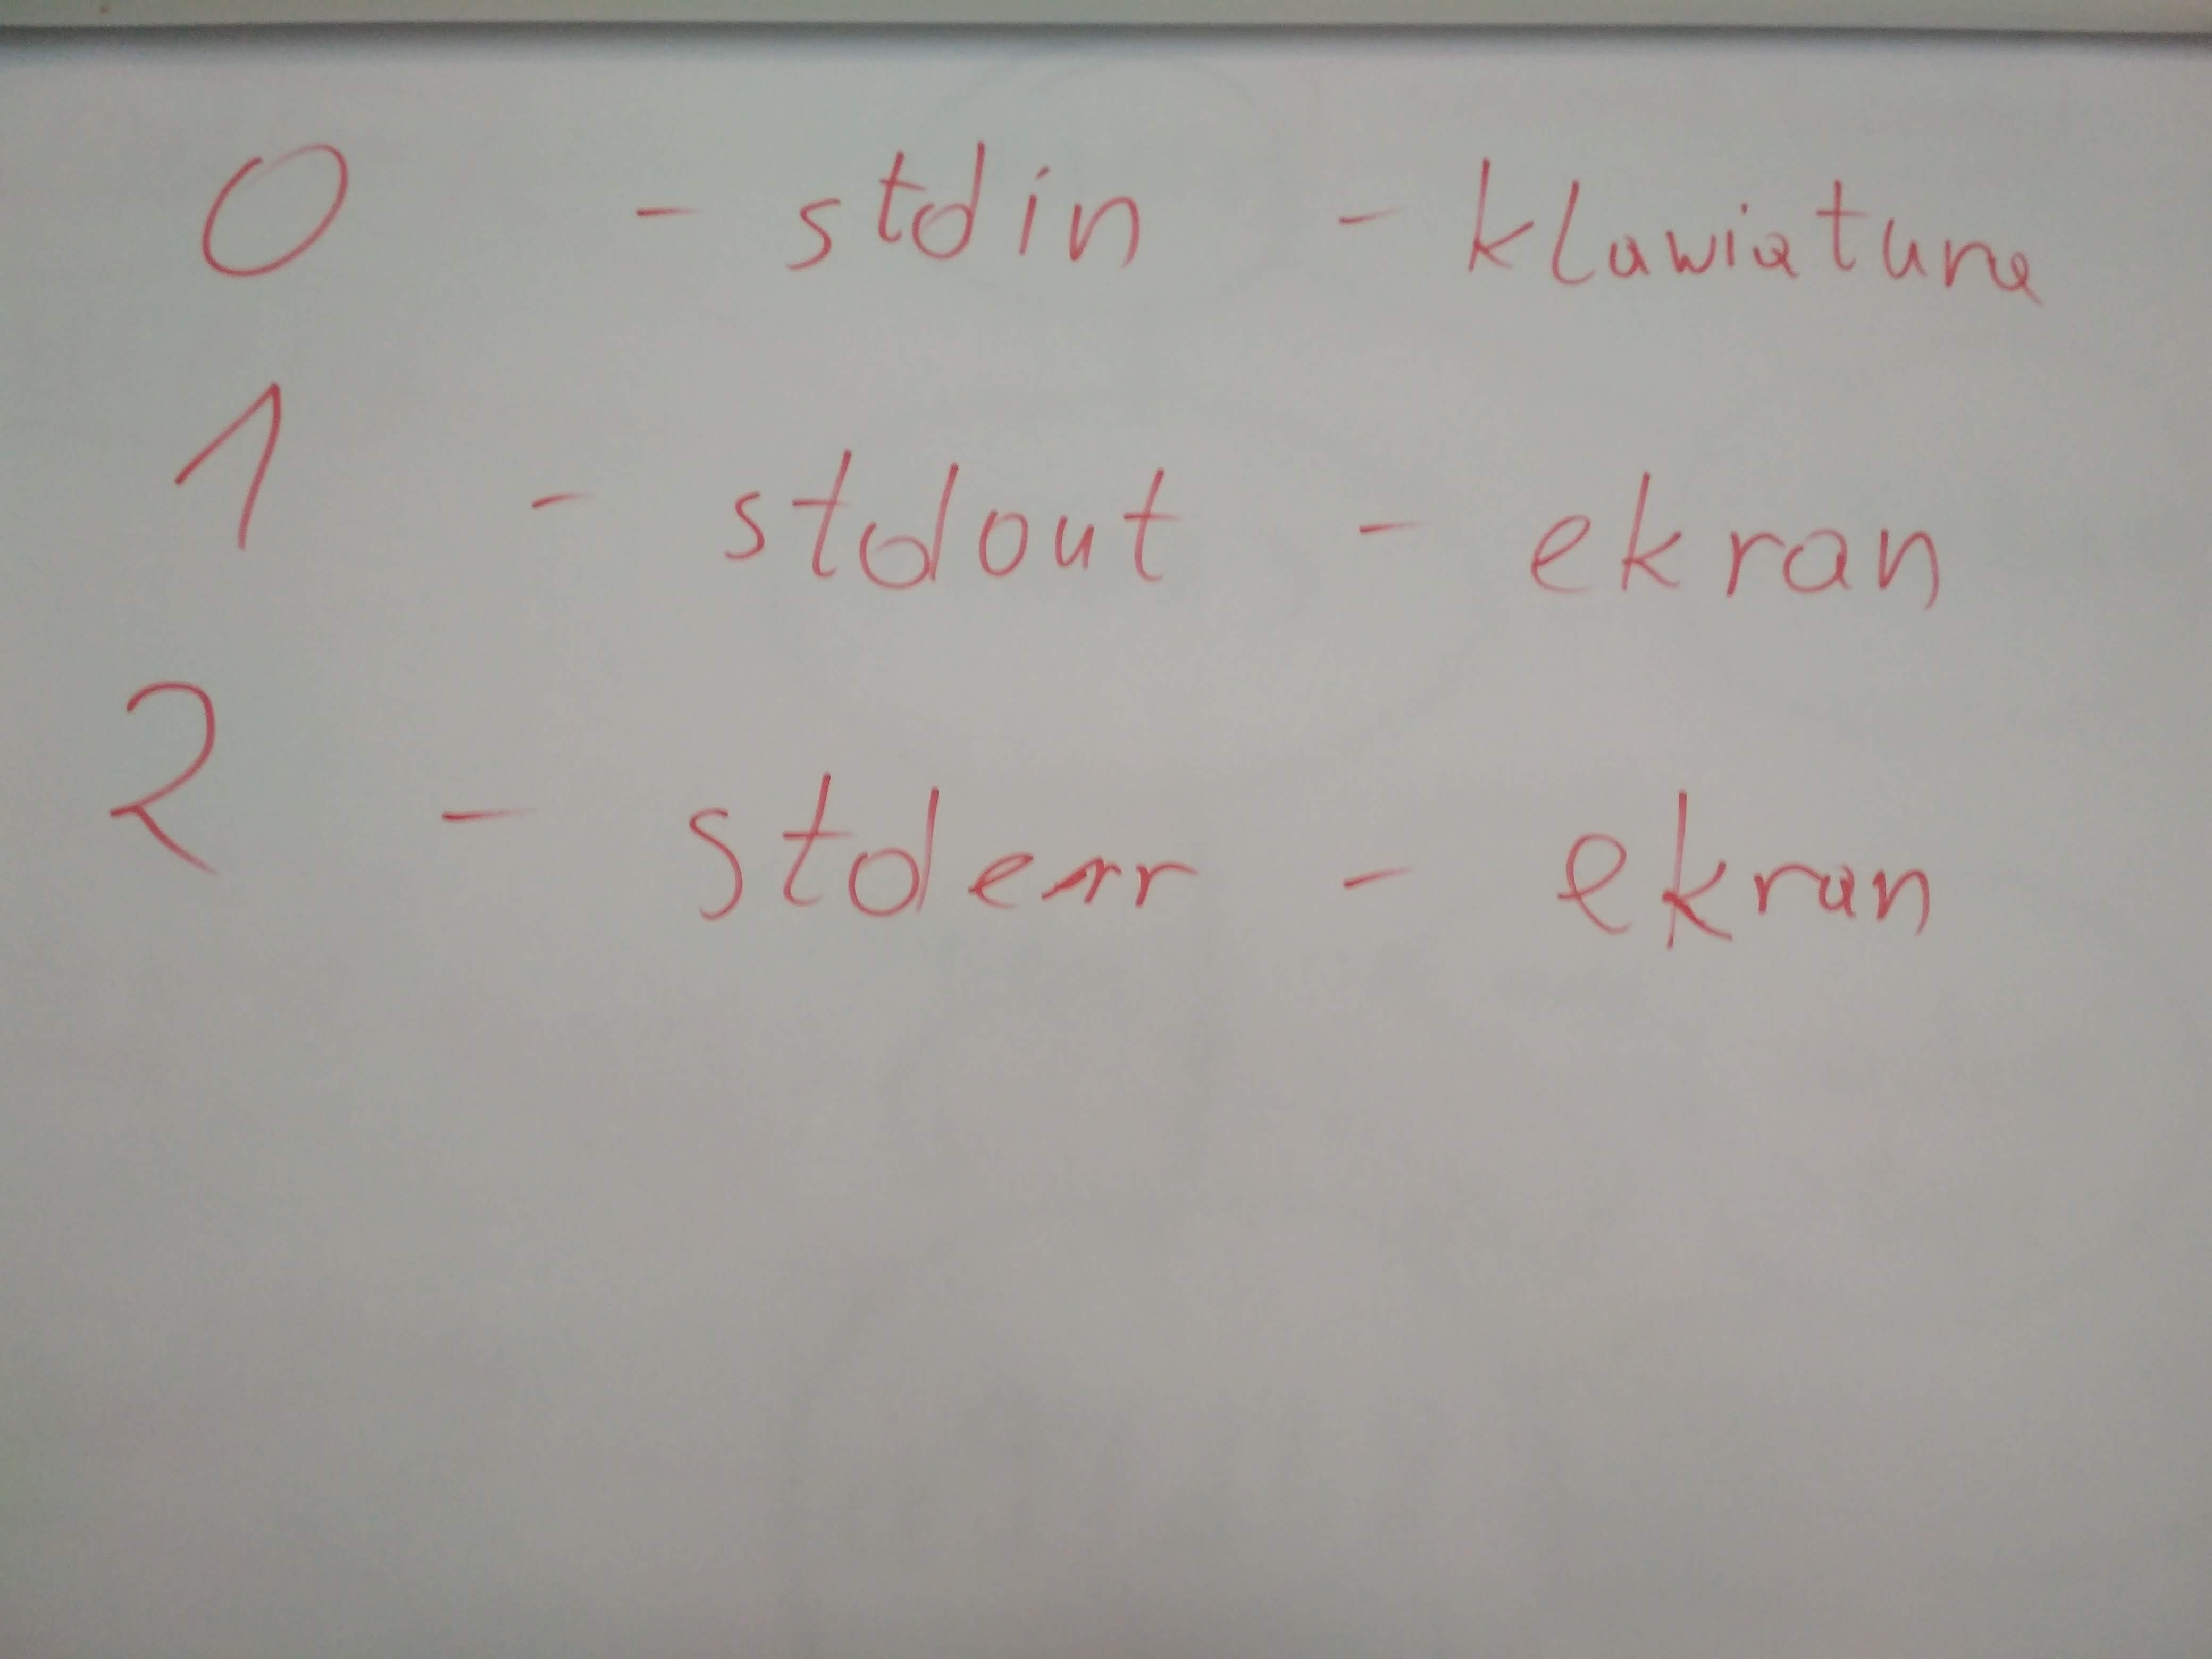 0 - stdin - klawiatura
1 - stdout - ekran
2 - stderr - ekran